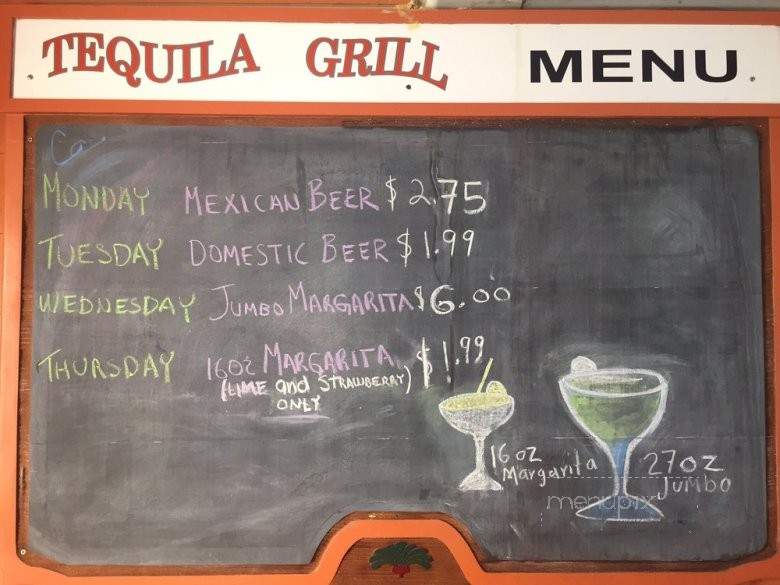 TEQUILA GRILL MENU
Ca
MONDAY MEXICAN BEER $2.75
TUESDAY DOMESTIC BEER $1.99
WEDNESDAY JUMBO MARGARITA $6.00
THURSDAY 16oz MARGARITA $1.99
(LIME and STRAWBERRY)
ONLY
16 oz
Margarita
27oz
Jumbo
menupix